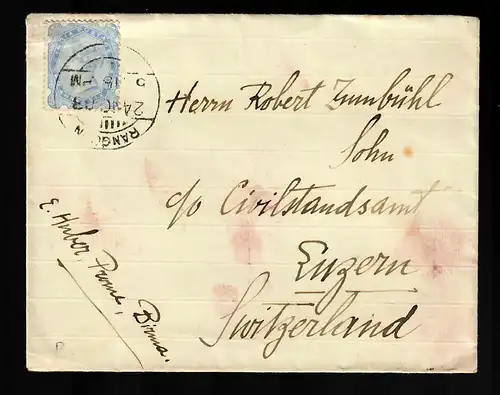 RANGO
2 AUG 03
Herrn Robert Zumbühl
Sohn
c/o Civilstandsamt
Luzern
Switzerland
E. Huber, Prome, Birma.